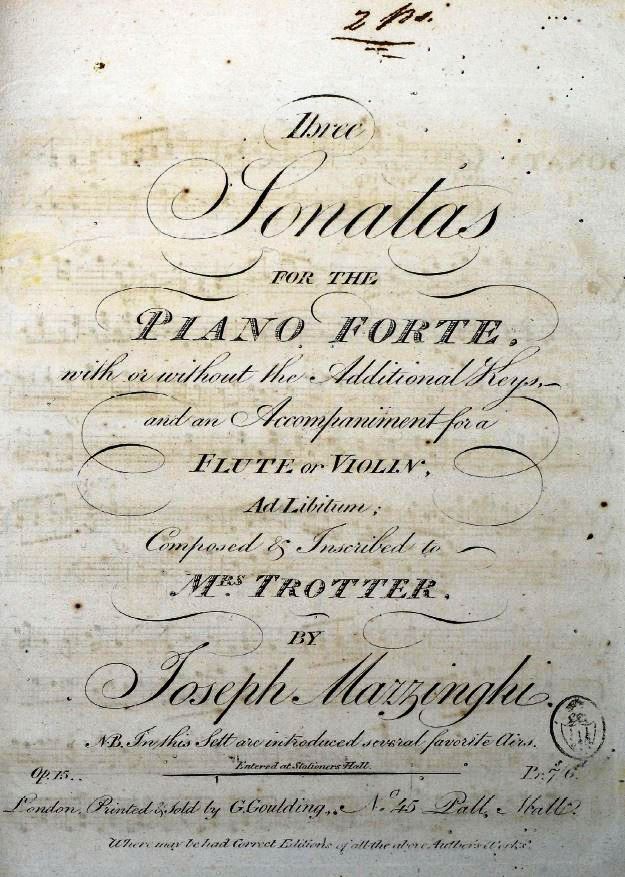 2 ps.
Three
Sonatas
FOR THE
PIANO FORTE.
with or without the Additional Keys,
and an Accompaniment for a
FLUTE or VIOLIN,
Ad Libitum;
Composed & Inscribed to
MRS TROTTER.
BY
Joseph Mazzinghi.
NB. In this Sett are introduced several favorite Airs.
Entered at Stationers Hall.
Op. 15. Pr. 7/6
London, Printed & Sold by G. Goulding, No. 45 Pall Mall.
Where may be had Correct Editions of all the above Authors Works